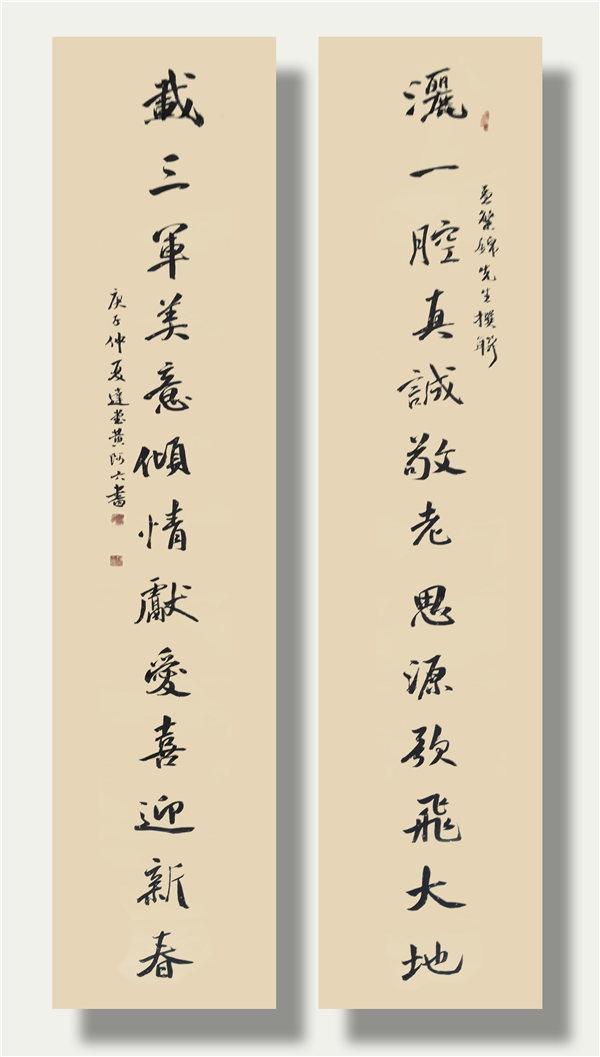 孟繁錦先生撰聯
灑一腔真誠敬老思源歌飛大地
載三軍美意傾情獻愛喜迎新春
庚子仲夏達黃阿六書